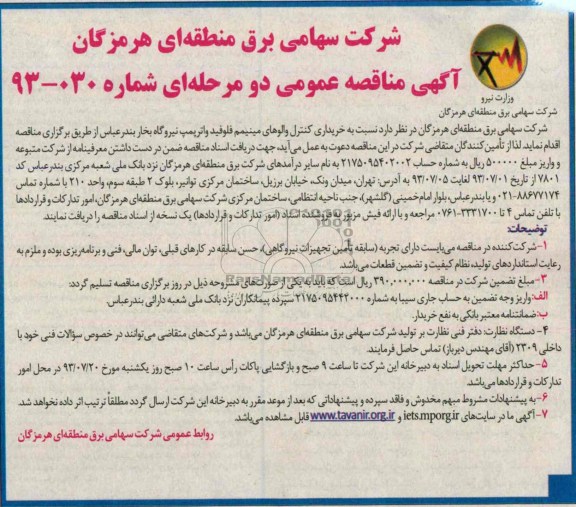 شرکت سهامی برق منطقه‌ای هرمزگان
آگهی مناقصه عمومی دو مرحله‌ای شماره ۰۳۰-۹۳
وزارت نیرو
شرکت سهامی برق منطقه‌ای هرمزگان
شرکت سهامی برق منطقه‌ای هرمزگان در نظر دارد نسبت به خریداری کنترل والوهای مینیمم فلوفید واترپمپ نیروگاه بخار بندرعباس از طریق برگزاری مناقصه
اقدام نماید. لذا از تأمین کنندگان متقاضی شرکت در این مناقصه دعوت به عمل می‌آید، جهت دریافت اسناد مناقصه ضمن در دست داشتن معرفینامه از شرکت متبوعه
و واریز مبلغ ۵۰۰۰۰۰ ریال به شماره حساب ۲۱۷۵۰۹۵۴۰۲۰۰۲ به نام سایر درآمدهای شرکت برق منطقه‌ای هرمزگان نزد بانک ملی شعبه مرکزی بندرعباس کد
۷۸۰۱ از تاریخ ۹۳/۰۷/۰۱ لغایت ۹۳/۰۷/۰۵ به آدرس: تهران، میدان ونک، خیابان برزیل، ساختمان مرکزی توانیر، بلوک ۲ طبقه سوم، واحد ۲۱۰ با شماره تماس
۰۲۱-۸۸۶۷۷۱۷۴ و یا بندرعباس، بلوار امام خمینی (گلشهر)، جنب ناحیه انتظامی، ساختمان مرکزی شرکت سهامی برق منطقه‌ای هرمزگان، امور تدارکات و قراردادها
با تلفن تماس ۴ تا ۳۳۳۱۷۰۰-۰۷۶۱ مراجعه و با ارائه فیش مزبور به فروشنده اسناد (امور تدارکات و قراردادها) یک نسخه از اسناد مناقصه را دریافت نمایند.
توضیحات:
۱-شرکت کننده در مناقصه می‌بایست دارای تجربه (سابقه تأمین تجهیزات نیروگاهی)، حسن سابقه در کارهای قبلی، توان مالی، فنی و برنامه‌ریزی بوده و ملزم به
رعایت استانداردهای تولید، نظام کیفیت و تضمین قطعات می‌باشد.
۳-مبلغ تضمین شرکت در مناقصه ۳۹۰,۰۰۰,۰۰۰ ریال است که باید به یکی از صورت‌های مشروحه ذیل در روز برگزاری مناقصه تسلیم گردد:
الف: واریز وجه تضمین به حساب جاری سیبا به شماره ۲۱۷۵۰۹۵۴۴۲۰۰۰ سپرده پیمانکاران نزد بانک ملی شعبه دارائی بندرعباس.
ب: ضمانتنامه معتبر بانکی به نفع خریدار.
۴- دستگاه نظارت: دفتر فنی نظارت بر تولید شرکت سهامی برق منطقه‌ای هرمزگان می‌باشد و شرکت‌های متقاضی می‌توانند در خصوص سؤالات فنی خود با
داخلی ۲۳۰۹ (آقای مهندس دیرباز) تماس حاصل فرمایند.
۵- حداکثر مهلت تحویل اسناد به دبیرخانه این شرکت تا ساعت ۹ صبح و بازگشایی پاکات رأس ساعت ۱۰ صبح روز یکشنبه مورخ ۹۳/۰۷/۲۰ در محل امور
تدارکات و قراردادها می‌باشد.
۶-به پیشنهادات مشروط مبهم مخدوش و فاقد سپرده و پیشنهاداتی که بعد از موعد مقرر به دبیرخانه این شرکت ارسال گردد مطلقاً ترتیب اثر داده نخواهد شد.
۷-آگهی ما در سایت‌های iets.mporg.ir و www.tavanir.org.ir قابل مشاهده می‌باشد.
روابط عمومی شرکت سهامی برق منطقه‌ای هرمزگان